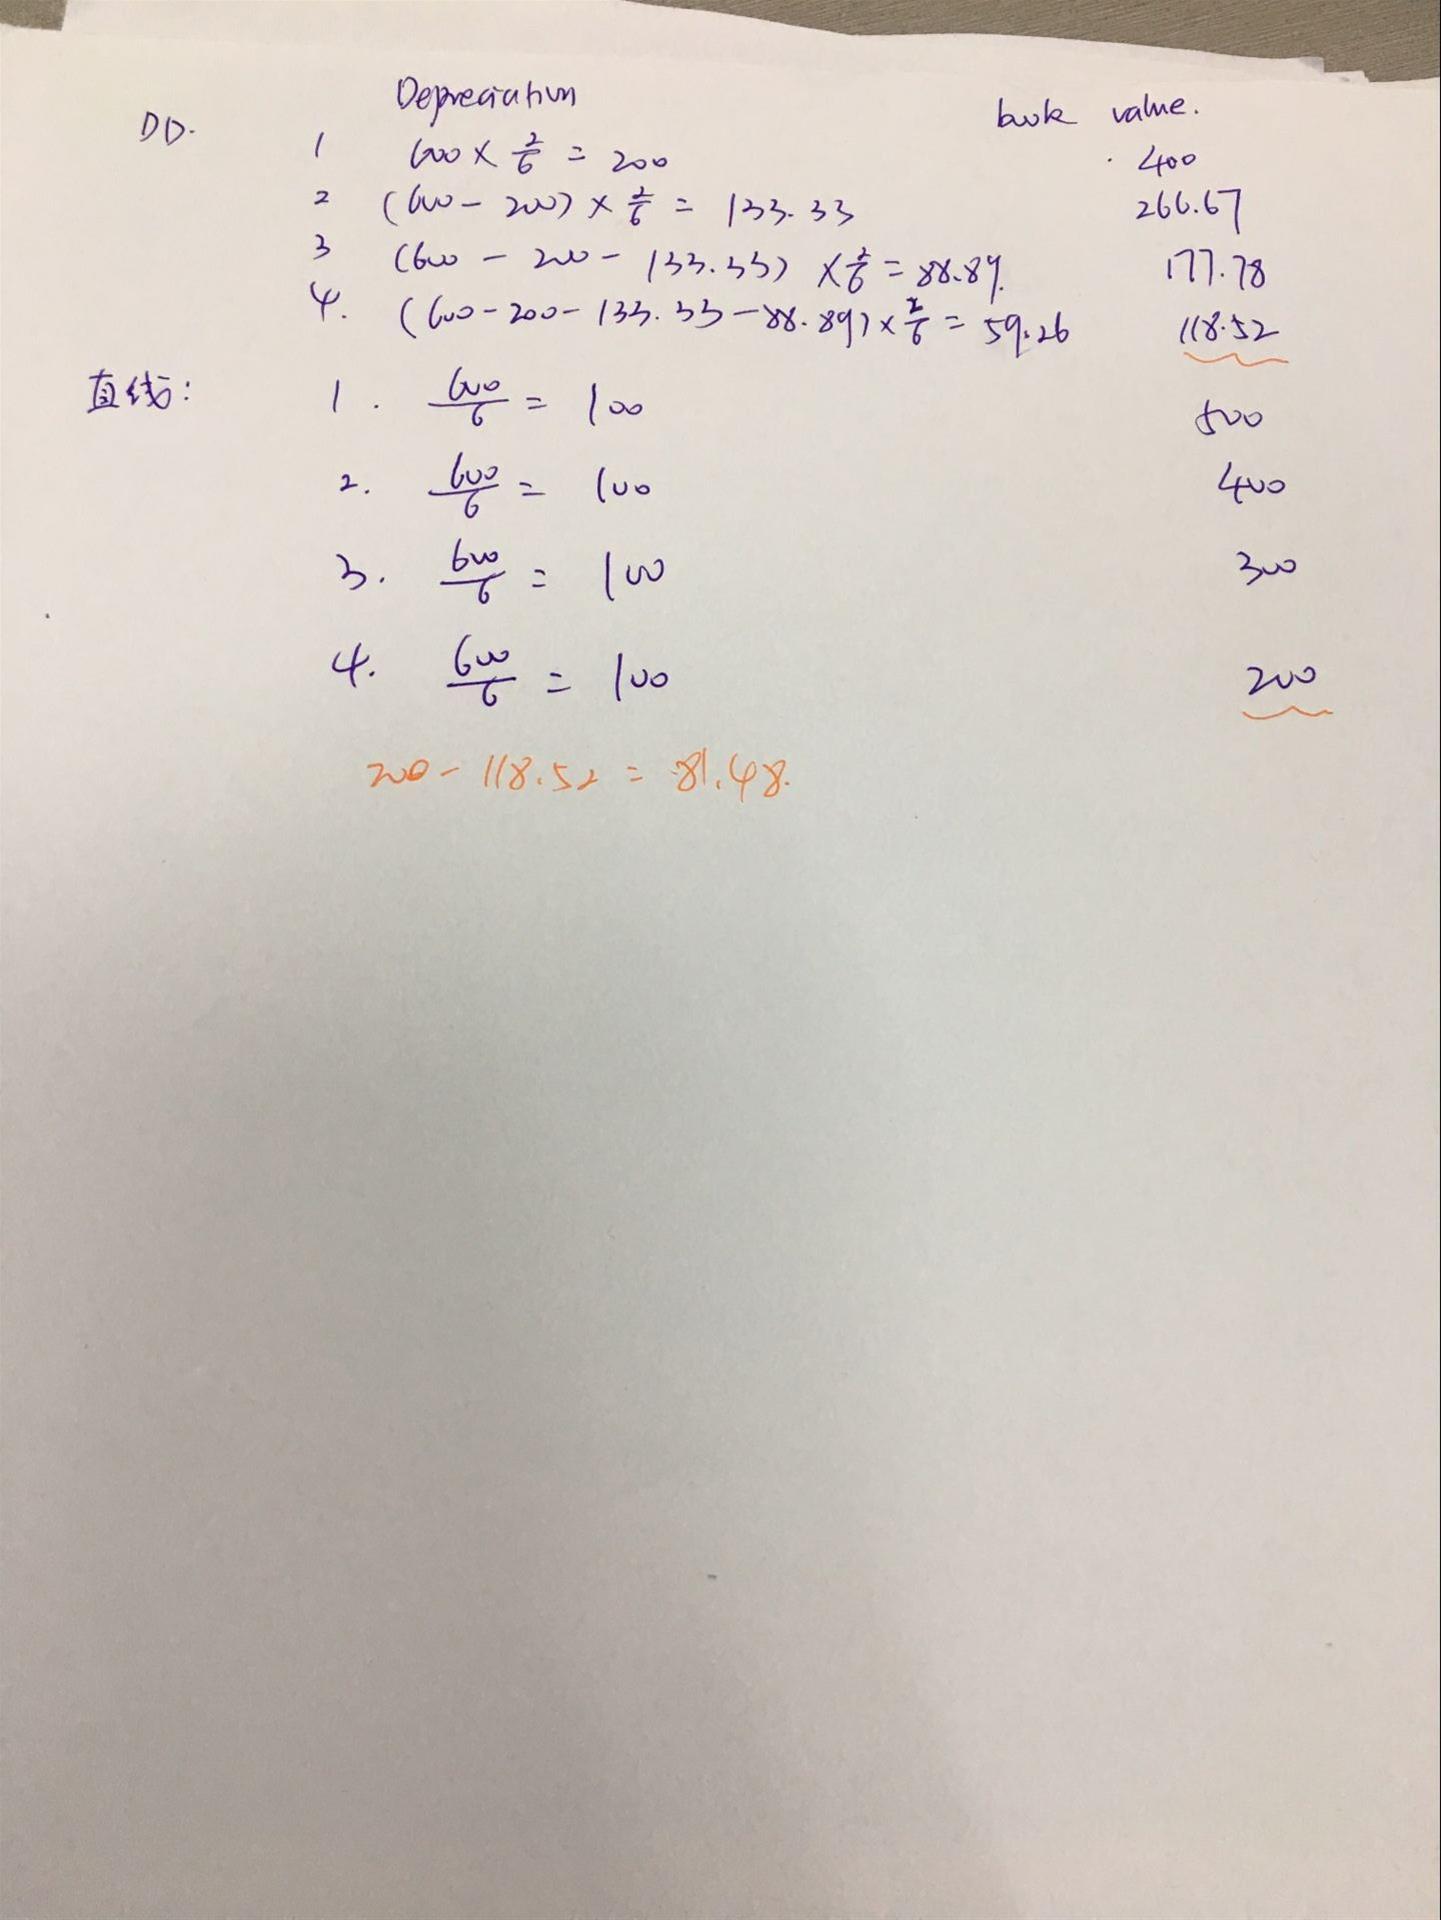 Depreciation book value.
DD. 1 600 × 2/6 = 200 400
2 (600 - 200) × 2/6 = 133.33 266.67
3 (600 - 200 - 133.33) × 2/6 = 88.89. 177.78
4. (600 - 200 - 133.33 - 88.89) × 2/6 = 59.26 118.52
直线: 1. 600/6 = 100 500
2. 600/6 = 100 400
3. 600/6 = 100 300
4. 600/6 = 100 200
200 - 118.52 = 81.48.